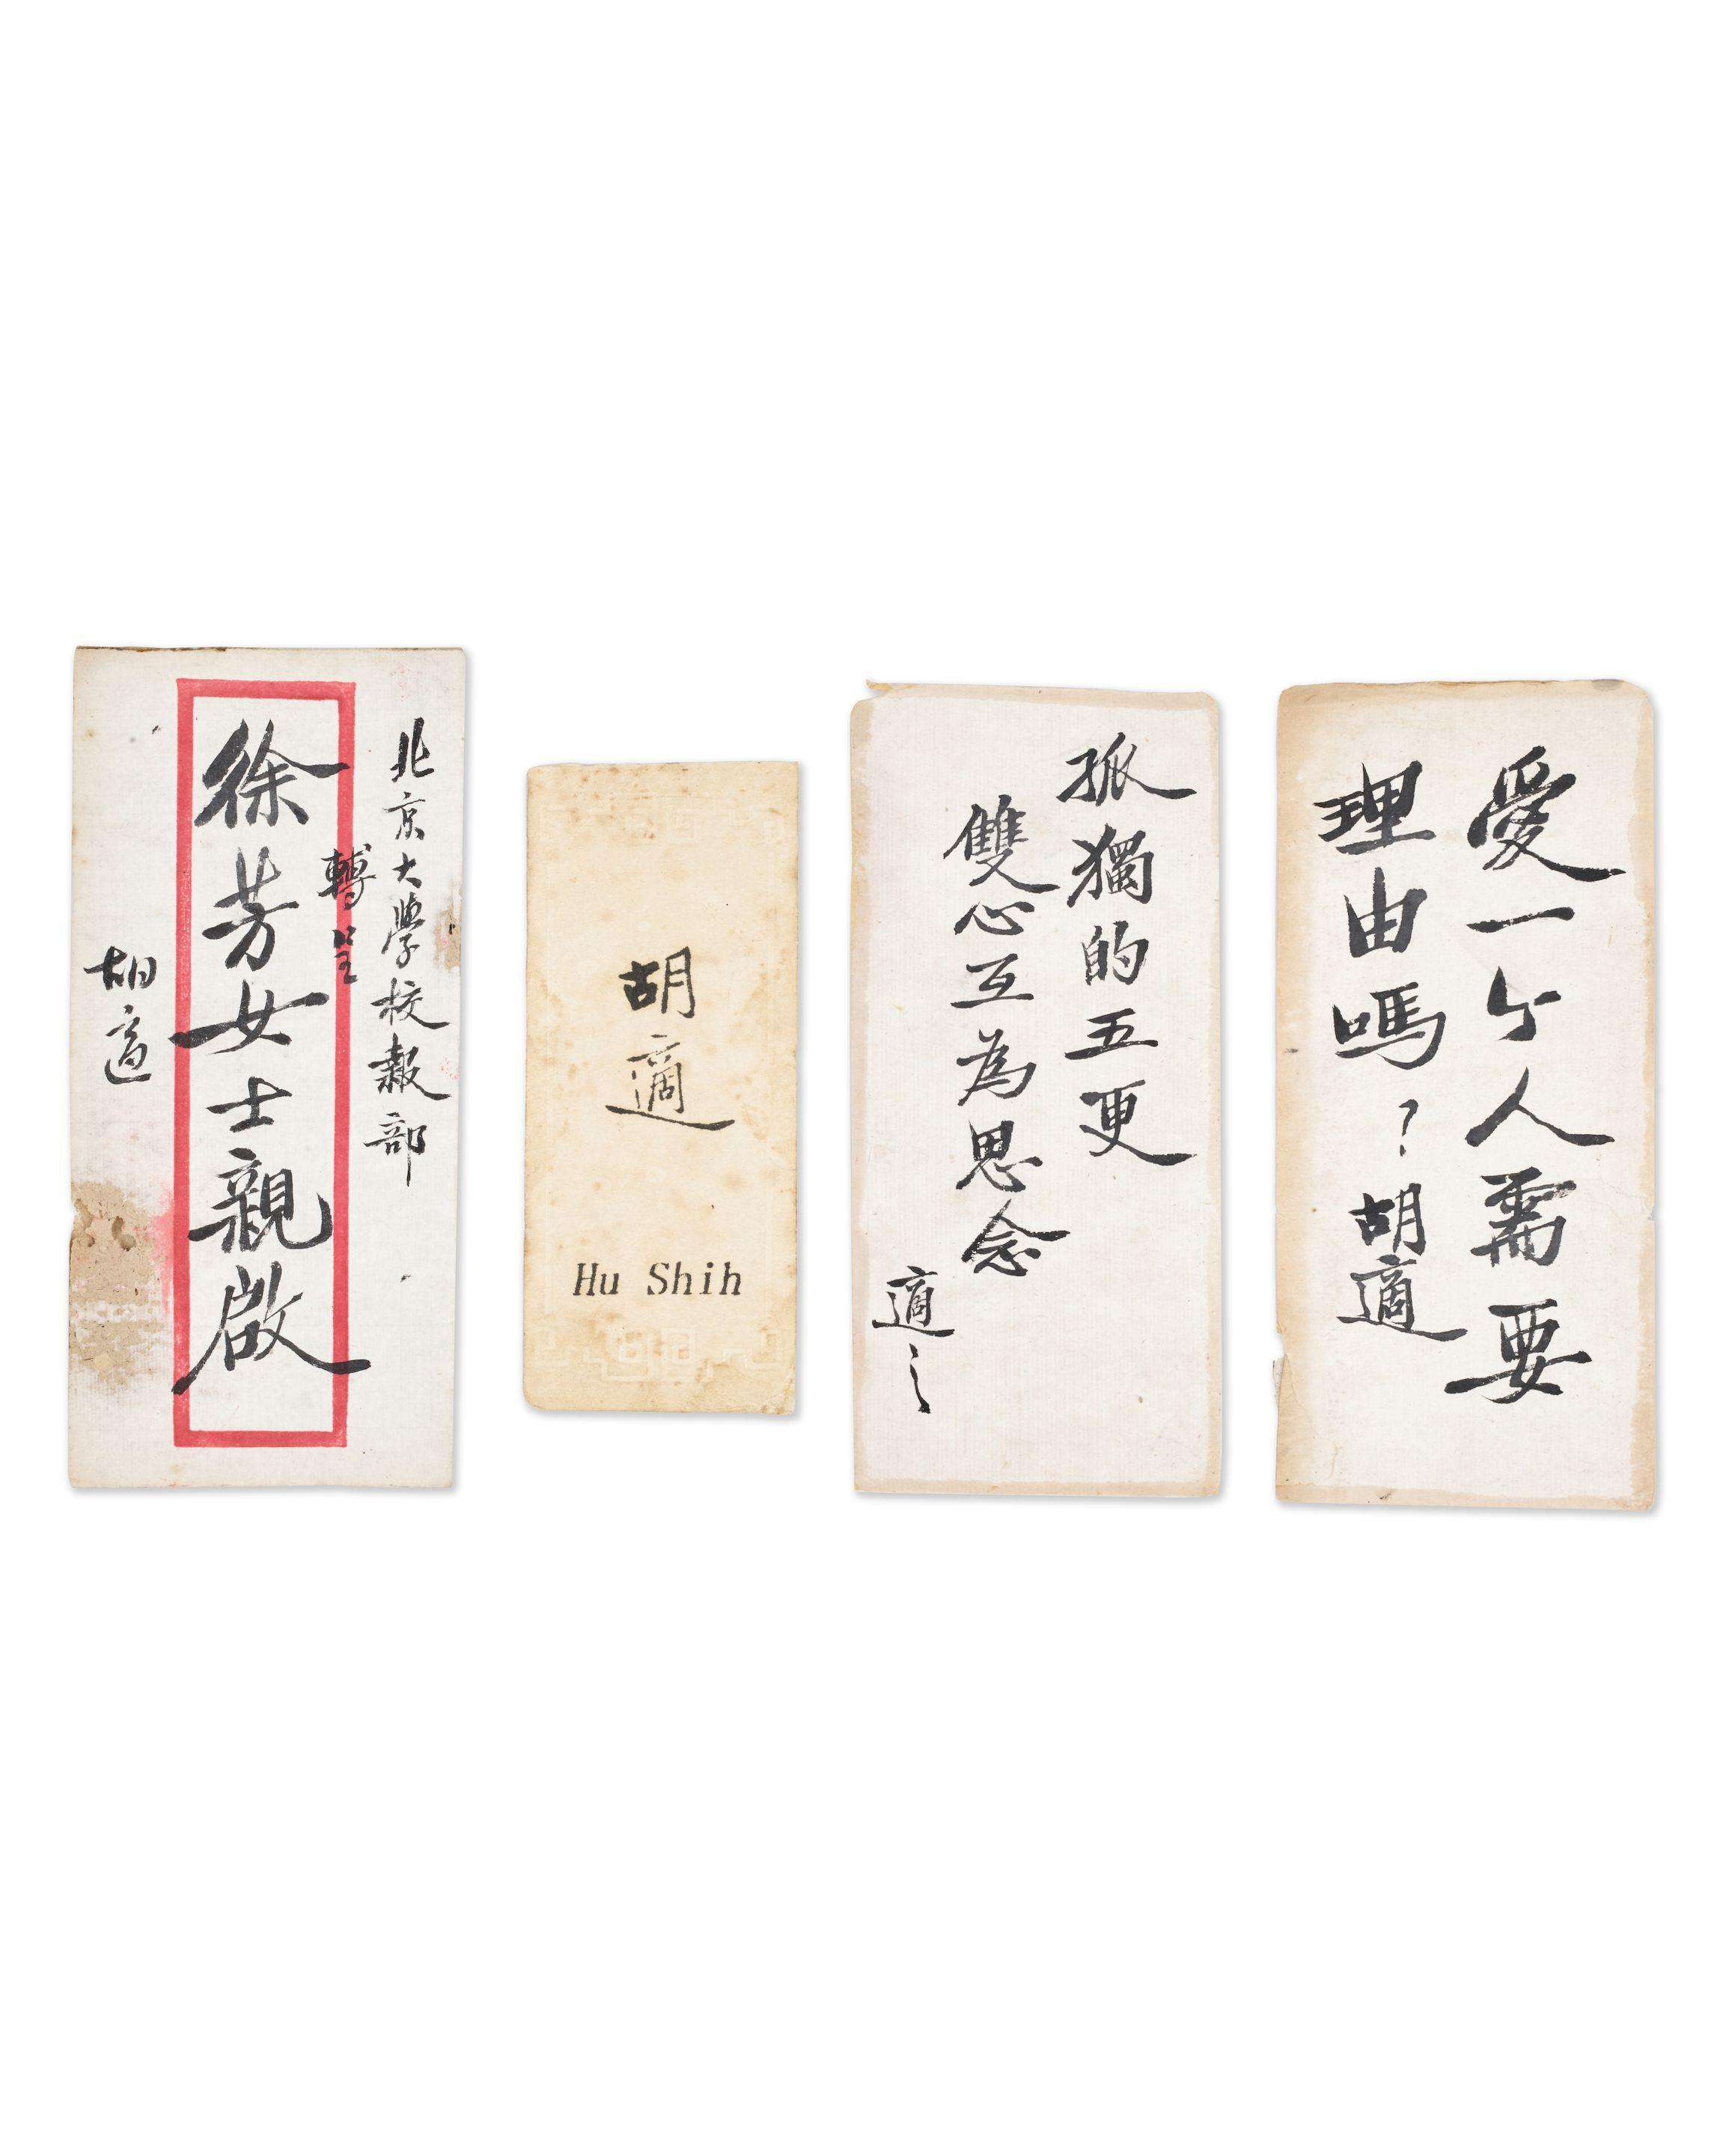 北京大學校報部
轉呈
徐芳女士親啟
胡適
胡適
Hu Shih
孤獨的五更
雙心互為思念
適之
愛一个人需要
理由嗎？胡適